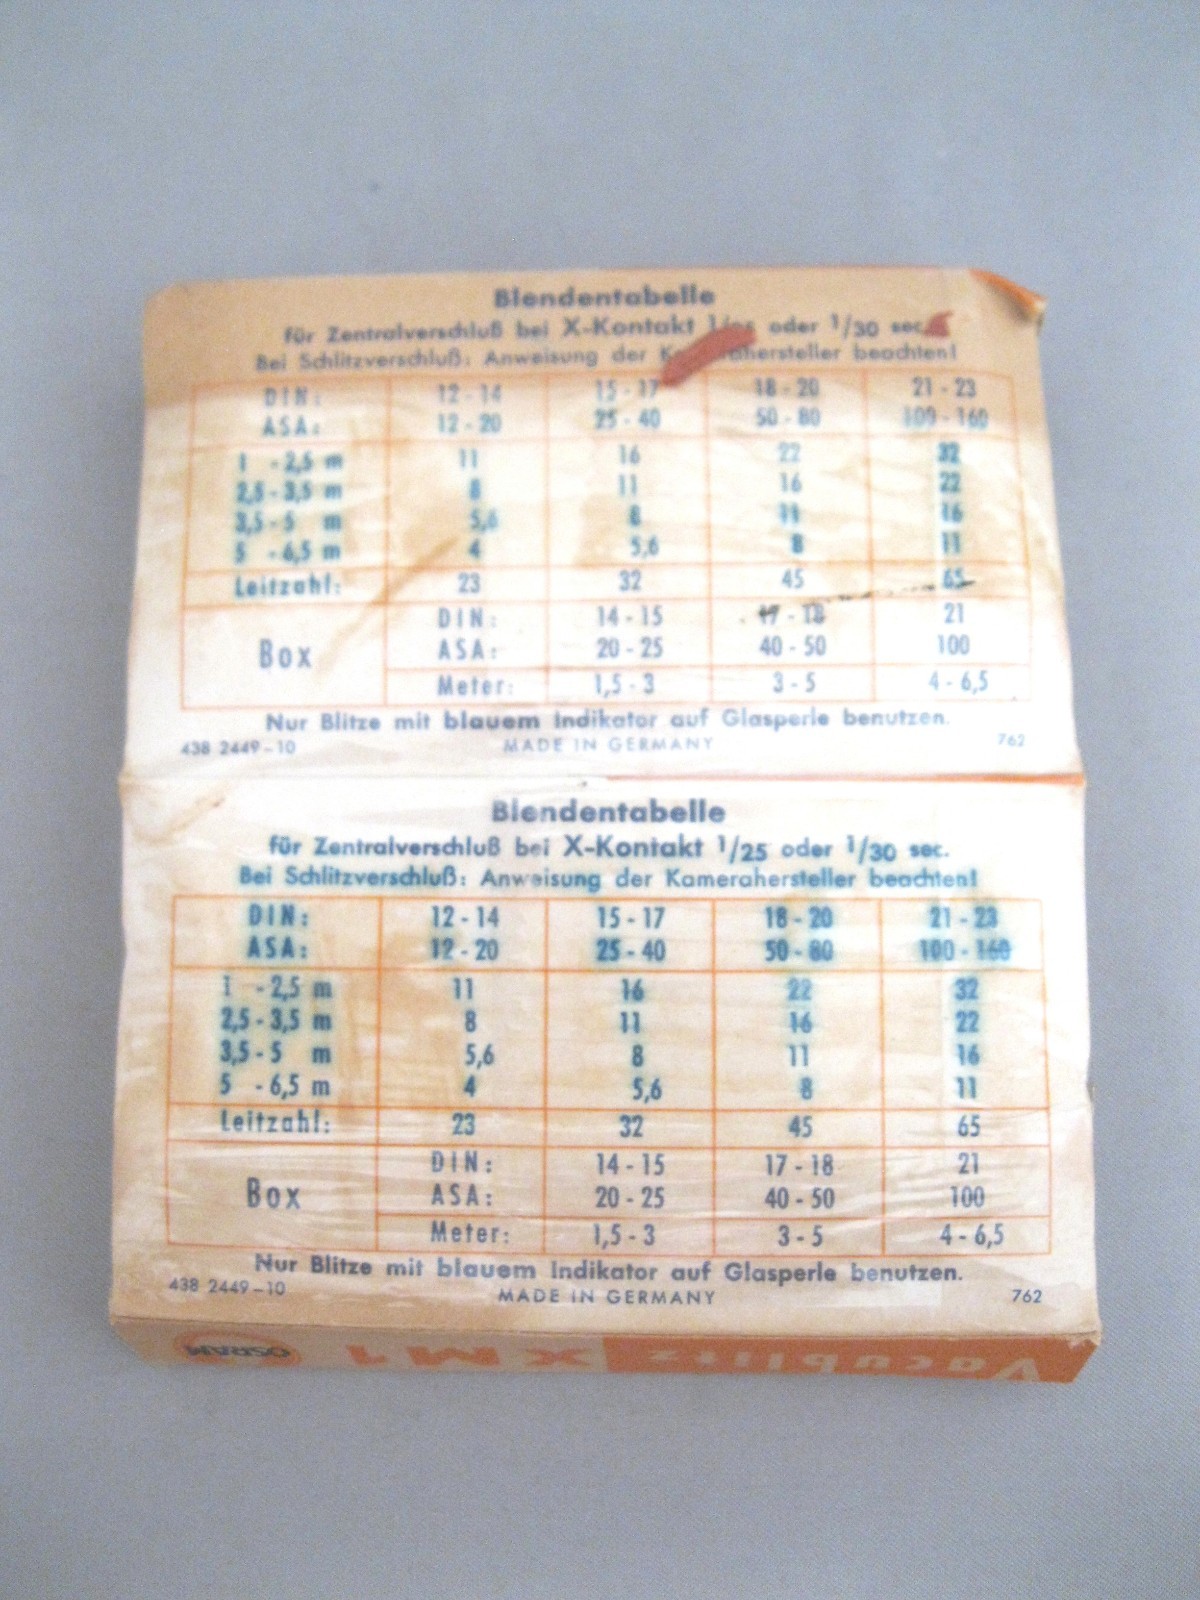 Blendentabelle
für Zentralverschluß bei X-Kontakt oder 1/30 sec.
Bei Schlitzverschluß: Anweisung der Kamerahersteller beachten!
DIN: 12-14 15-17 18-20 21-23
ASA: 12-20 25-40 50-80 100-160
1 -2,5 m 11 16 22 32
2,5-3,5 m 8 11 16 22
3,5-5 m 5,6 8 11 16
5 -6,5 m 4 5,6 8 11
Leitzahl: 23 32 45 65
DIN: 14-15 17-18 21
Box ASA: 20-25 40-50 100
Meter: 1,5-3 3-5 4-6,5
Nur Blitze mit blauem Indikator auf Glasperle benutzen.
438 2449-10 MADE IN GERMANY 762
Blendentabelle
für Zentralverschluß bei X-Kontakt 1/25 oder 1/30 sec.
Bei Schlitzverschluß: Anweisung der Kamerahersteller beachten!
DIN: 12-14 15-17 18-20 21-23
ASA: 12-20 25-40 50-80 100-160
1 -2,5 m 11 16 22 32
2,5-3,5 m 8 11 16 22
3,5-5 m 5,6 8 11 16
5 -6,5 m 4 5,6 8 11
Leitzahl: 23 32 45 65
DIN: 14-15 17-18 21
Box ASA: 20-25 40-50 100
Meter: 1,5-3 3-5 4-6,5
Nur Blitze mit blauem Indikator auf Glasperle benutzen.
438 2449-10 MADE IN GERMANY 762
Vacublitz XM 1 OSRAM